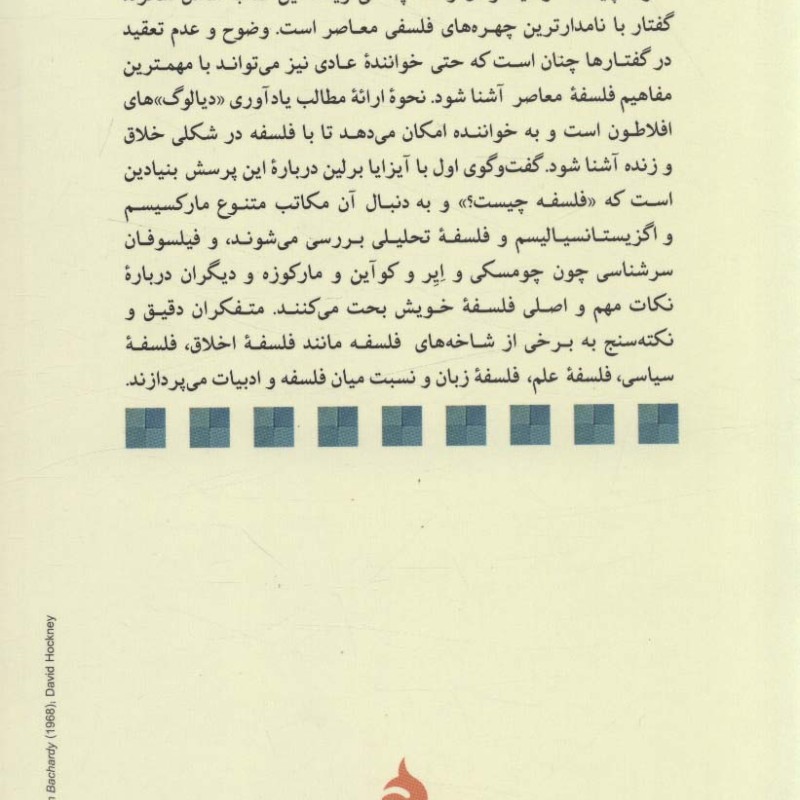 گفتار با نامدارترین چهره‌های فلسفی معاصر است. وضوح و عدم تعقید
در گفتارها چنان است که حتی خوانندهٔ عادی نیز می‌تواند با مهمترین
مفاهیم فلسفهٔ معاصر آشنا شود. نحوهٔ ارائهٔ مطالب یادآوری «دیالوگ»های
افلاطون است و به خواننده امکان می‌دهد تا با فلسفه در شکلی خلاق
و زنده آشنا شود. گفت‌وگوی اول با آیزایا برلین دربارهٔ این پرسش بنیادین
است که «فلسفه چیست؟» و به دنبال آن مکاتب متنوع مارکسیسم
و اگزیستانسیالیسم و فلسفهٔ تحلیلی بررسی می‌شوند، و فیلسوفان
سرشناسی چون چومسکی و اِیِر و کوآین و مارکوزه و دیگران دربارهٔ
نکات مهم و اصلی فلسفهٔ خویش بحت می‌کنند. متفکران دقیق و
نکته‌سنج به برخی از شاخه‌های فلسفه مانند فلسفهٔ اخلاق، فلسفهٔ
سیاسی، فلسفهٔ علم، فلسفهٔ زبان و نسبت میان فلسفه و ادبیات می‌پردازند.
Bachardy (1968), David Hockney